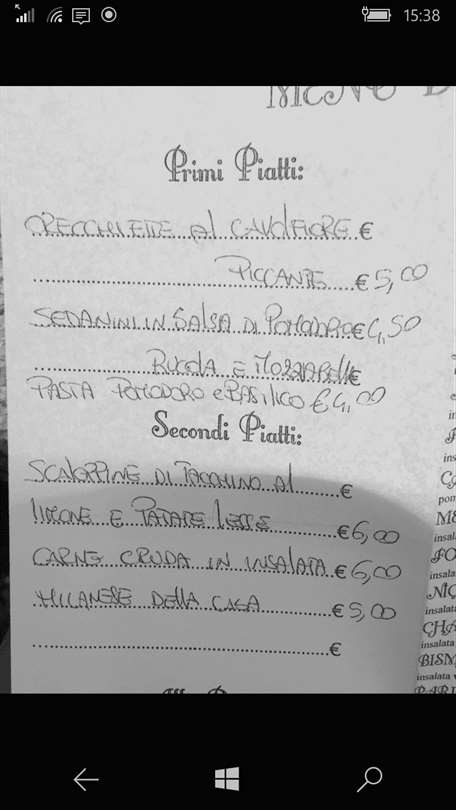 15:38
MENÙ D
Primi Piatti:
ORECCHIETTE AL CAVOLFIORE €
PICCANTE € 5,00
SEDANINI IN SALSA DI POMODORO € 4,50
RUCOLA E MOZZARELLA €
PASTA POMODORO e BASILICO € 4,00
Secondi Piatti:
SCALOPPINE DI TACCHINO AL €
LIMONE E PATATE LESSE € 6,00
CARNE CRUDA IN INSALATA € 6,00
MILANESE DELLA CASA € 5,00
€
insal
pom
insala
insalata
insalata
insalata
BISM
insalata v